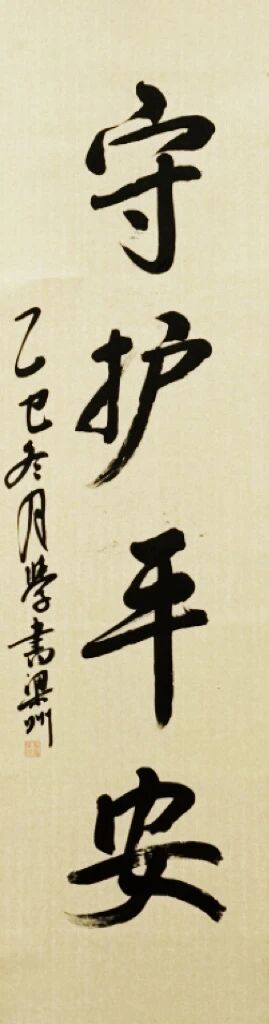 守护平安
乙巳冬月学书梁州